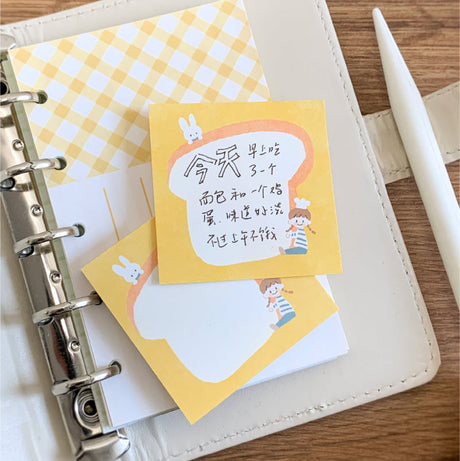 今天 早上吃
了一个
面包和一个鸡
蛋,味道好淡
不过上午不饿